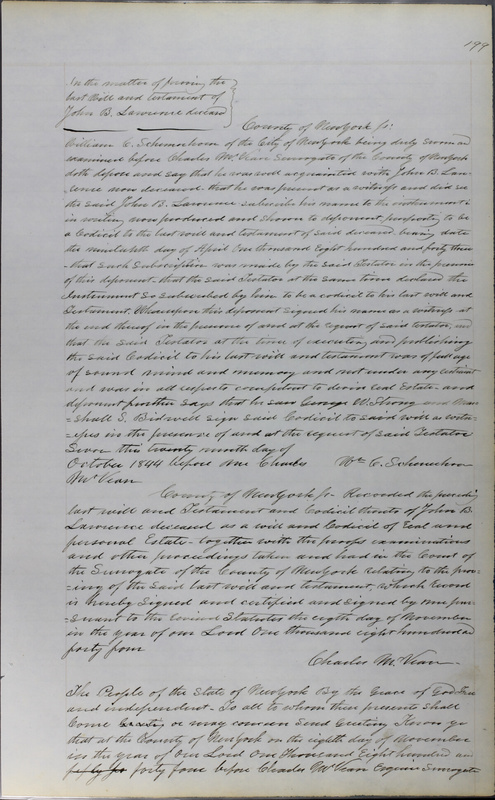 199
In the matter of proving the
last Will and testament of
John B. Lawrence deceased
County of New York ss:
William C. Schermerhorn of the City of New York being duly sworn and
examined before Charles McVean Surrogate of the County of New York
doth depose and say that he was well acquainted with John B. Law-
-rence now deceased. that he was present as a witness and did see
the said John B. Lawrence subscribe his name to the instrument
in writing now produced and shown to deponent purporting to be
a Codicil to the last will and testament of said deceased, bearing date
the nineteenth day of April One thousand Eight hundred and forty three
-that such Subscription was made by the said Testator in the presence
of this deponent- that the said Testator at the same time declared the
Instrument so subscribed by him to be a codicil to his last will and
Testament. Whereupon this deponent signed his name as a witness at
the end thereof in the presence of and at the request of said testator, and
that the said Testator at the time of executing and publishing
the said Codicil to his last will and testament was of full age
of sound mind and memory and not under any restraint
and was in all respects competent to devise real Estate- and
deponent further says that he saw George W. Strong and Mar-
=shall S. Bidwell sign said Codicil to said will as witn-
=esses in the presence of and at the request of said Testator
Sworn this twenty ninth day of
October 1844 before me Charles Wm C. Schermerhorn
McVean
County of New York ss- Recorded the preceding
last will and Testament and Codicil thereto of John B.
Lawrence deceased as a will and Codicil of real and
personal Estate- together with the proofs examinations
and other proceedings taken and had in the Court of
the Surrogate of the County of New York relating to the prov-
=ing of the said last will and testament, which Record
is hereby signed and certified and signed by me pur-
=suant to the revised Statutes the eighth day of November
in the year of our Lord One thousand eight hundred and
forty four
Charles McVean
The People of the State of New York By the Grace of God Free
and independent- To all to whom these presents shall
Come or may concern Send Greeting Know ye
that at the County of New York on the eighth day of November
in the year of Our Lord One thousand Eight hundred and
forty four before Charles McVean Esquire Surrogate